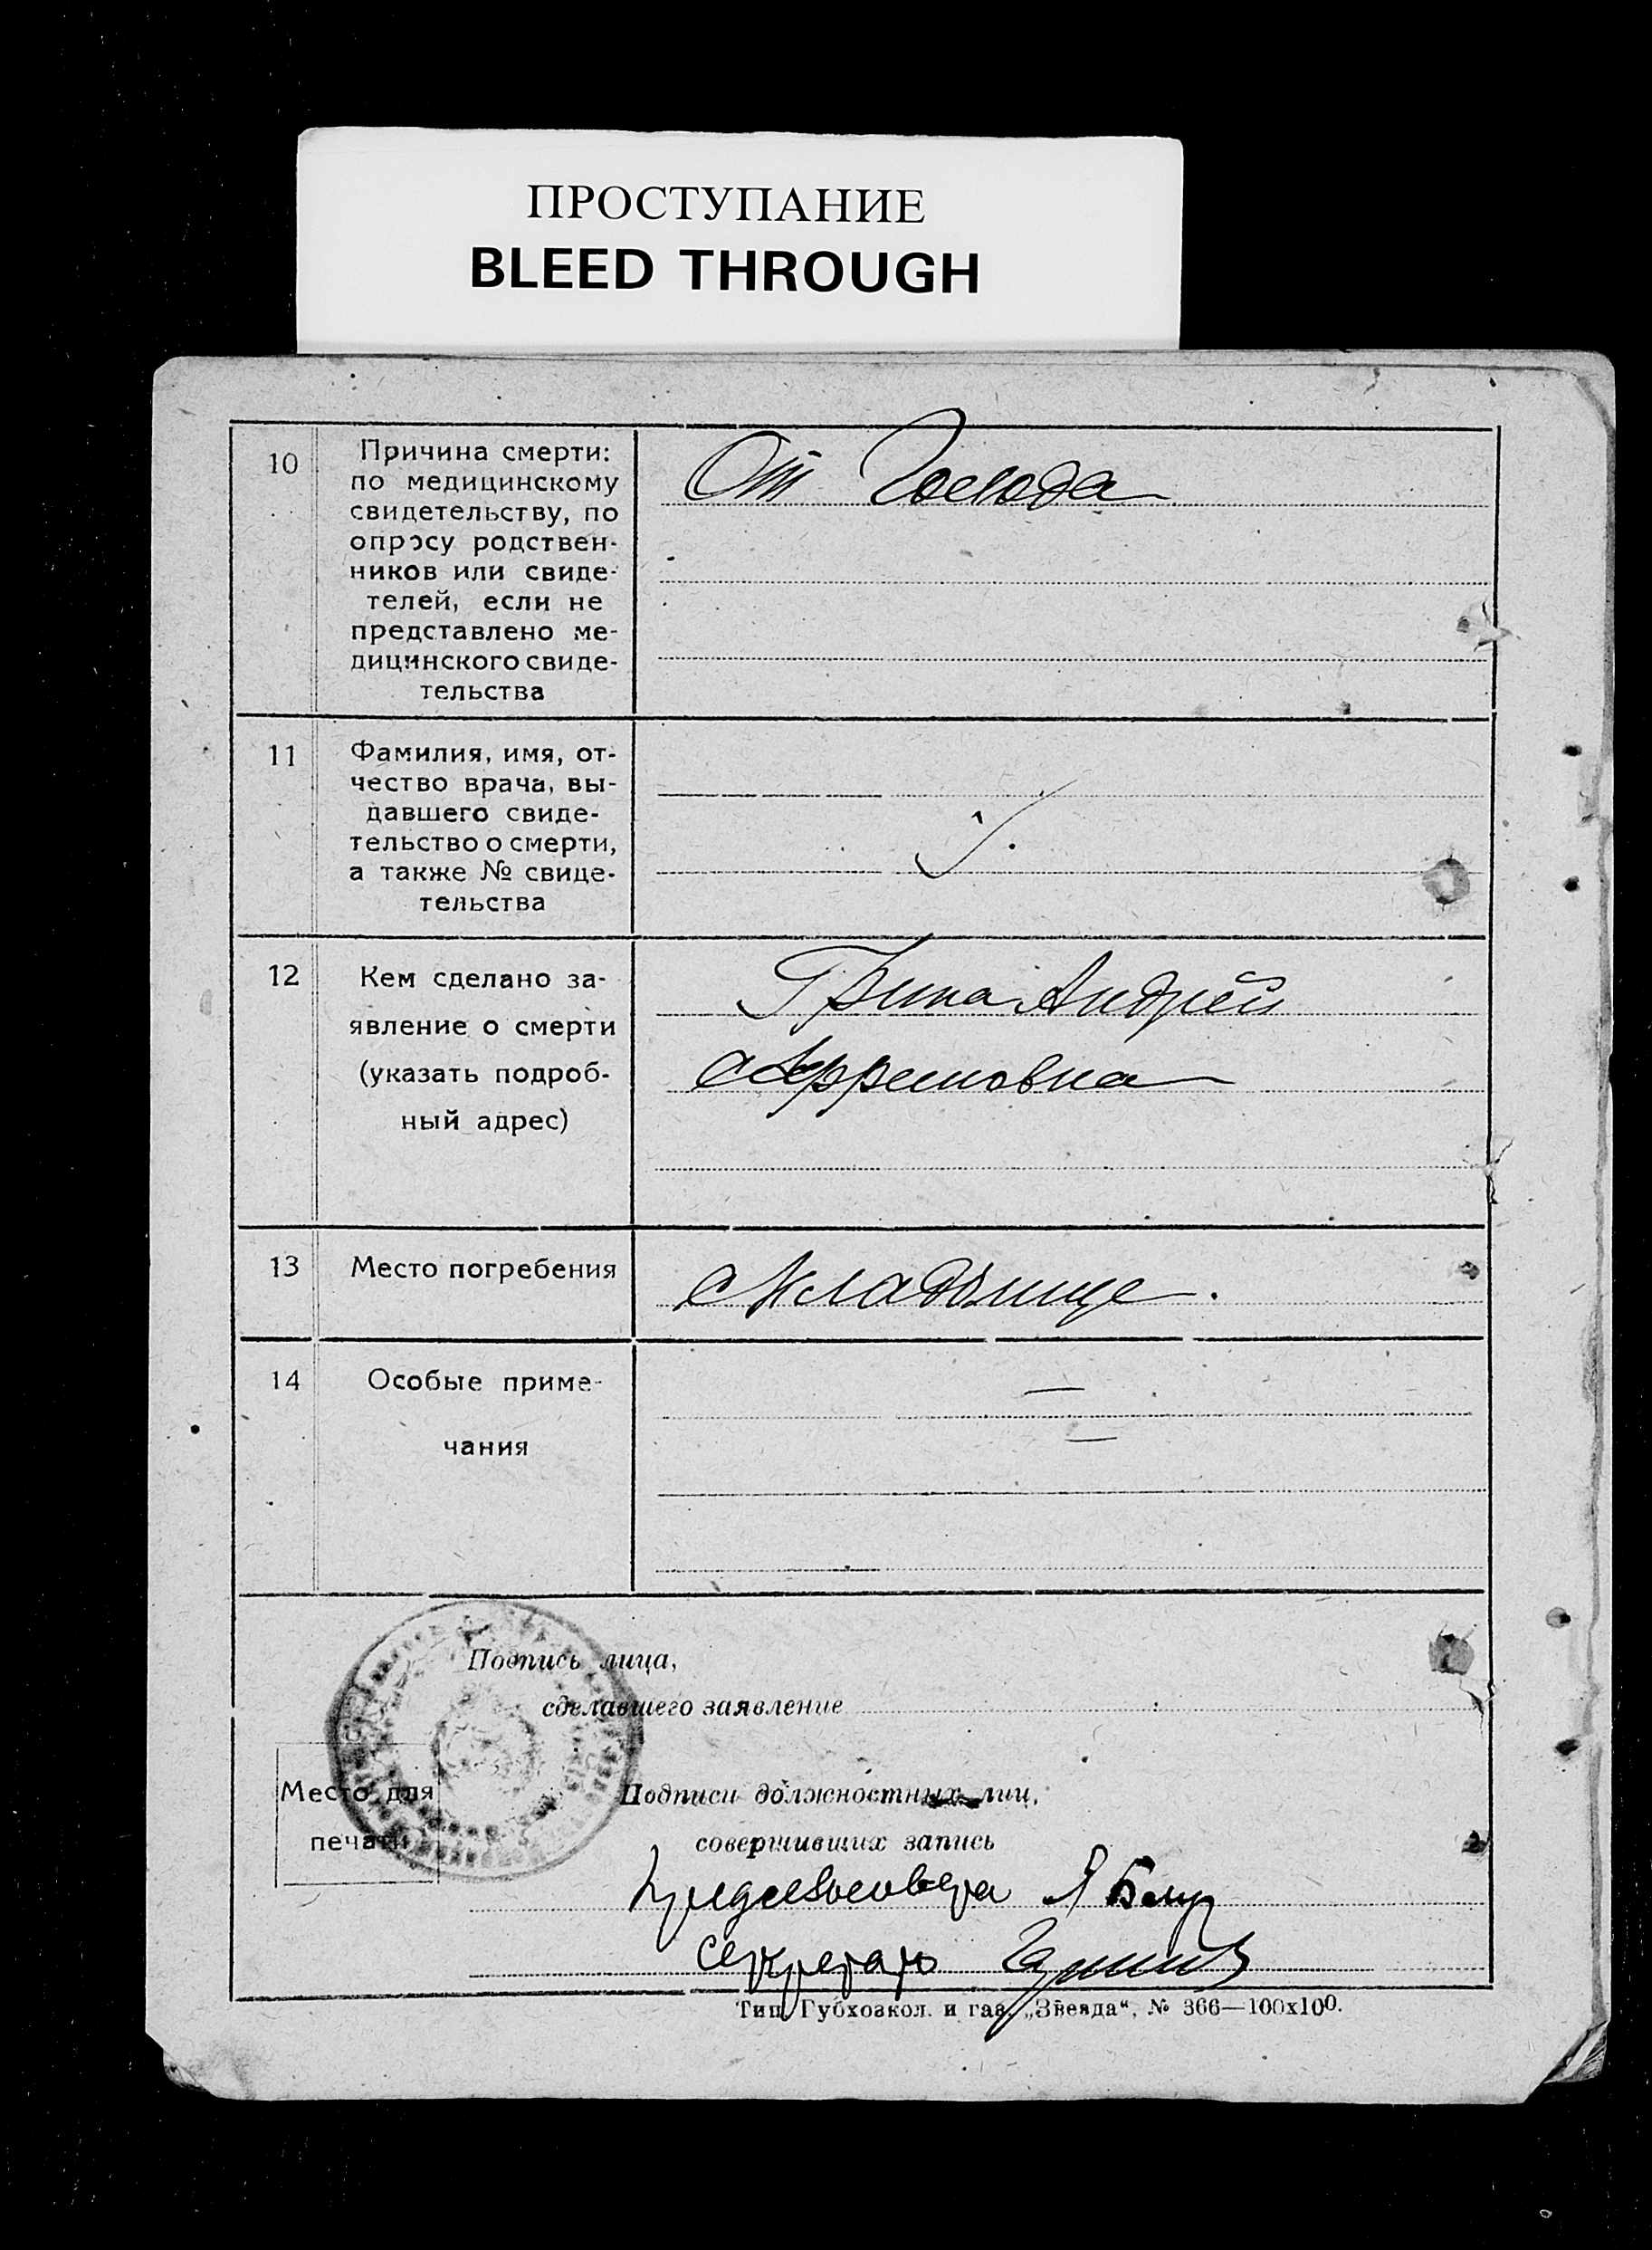 ПРОСТУПАНИЕ
BLEED THROUGH
10
Причина смерти:
по медицинскому
свидетельству, по
опросу родствен-
ников или свиде-
телей, если не
представлено ме-
дицинского свиде-
тельства
От Голода
11
Фамилия, имя, от-
чество врача, вы-
давшего свиде-
тельство о смерти,
а также № свиде-
тельства
12
Кем сделано за-
явление о смерти
(указать подроб-
ный адрес)
Грина Андрей
13
Место погребения
Кладбище.
14
Особые приме-
чания
—
—
Подпись лица,
сделавшего заявление
Место для
печати
Подписи должностных лиц,
совершивших запись
секретарь
Тип. Губхозкол. и газ. „Звезда“, № 366—100х100.